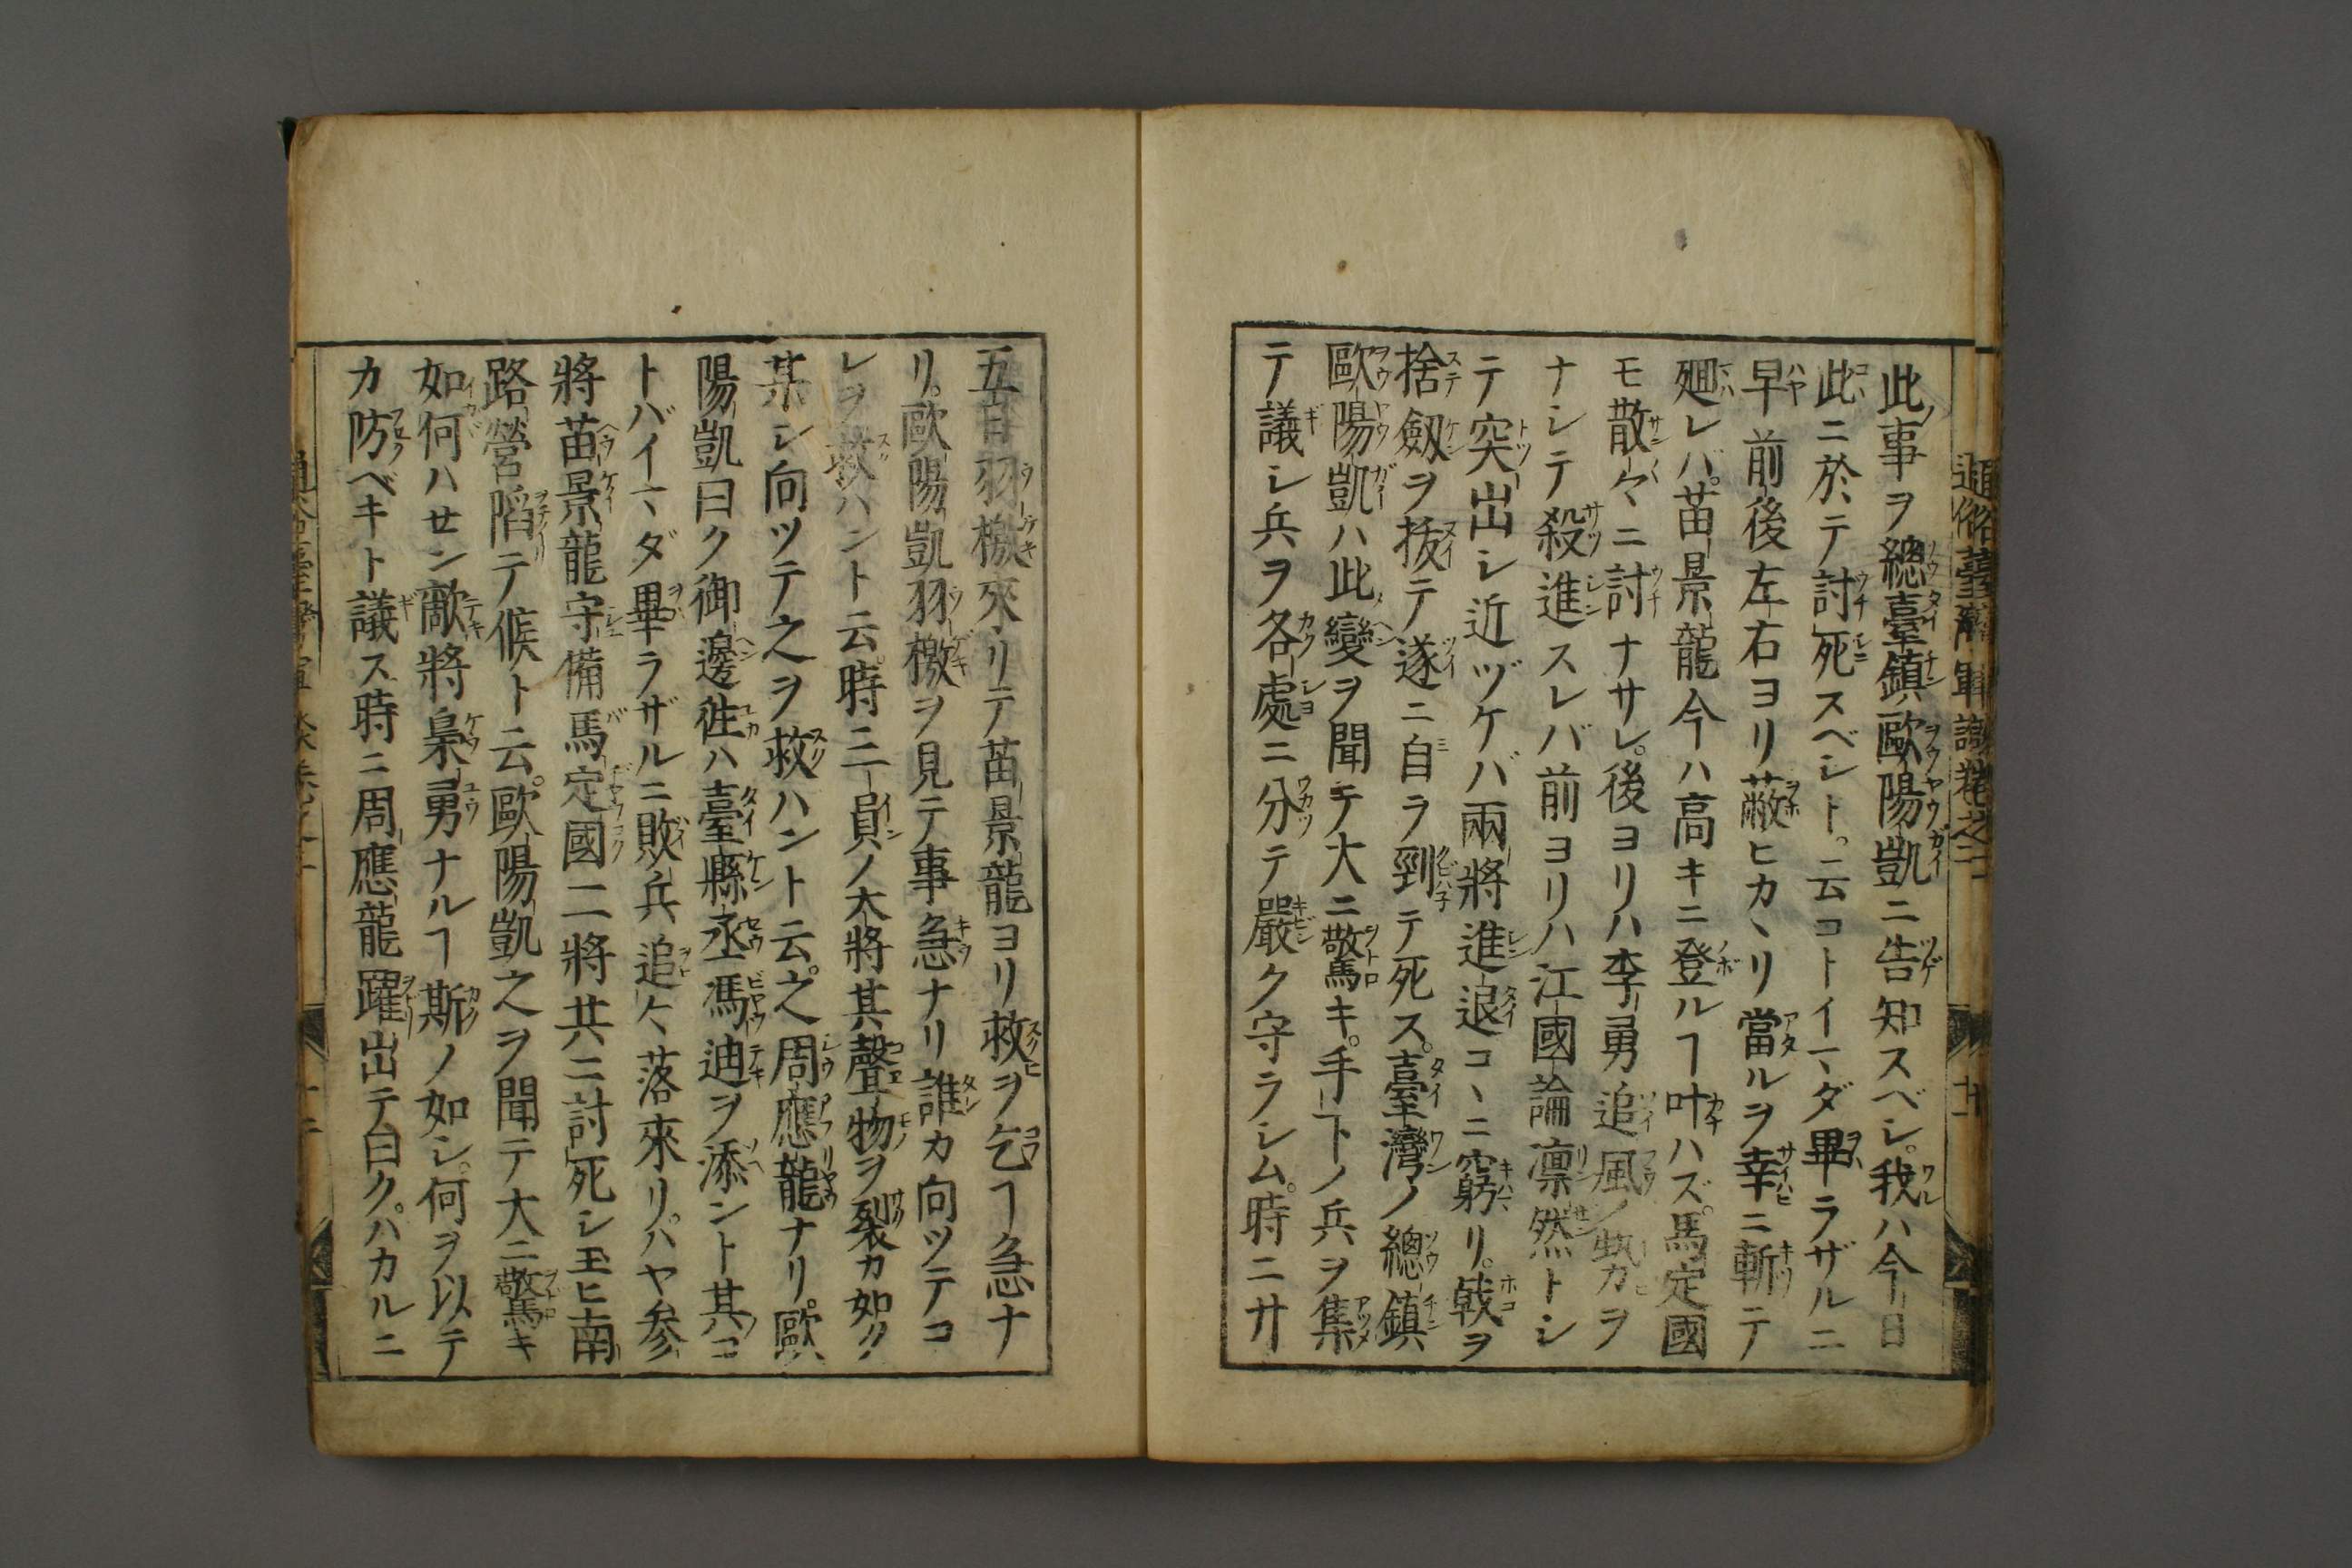 此ノ事ヲ總臺鎮歐陽凱ニ告知スベシ。我ハ今日
此ニ於テ討死スベシト。云コトイマダ畢ラザルニ
早前後左右ヨリ蔽ヒカヽリ當ルヲ幸ニ斬テ
廻レバ。苗景龍今ハ高キニ登ルヿ叶ハズ。馬定國
モ散々ニ討ナサレ。後ヨリハ李勇追風ノ勢ヲ
ナシテ殺進スレバ前ヨリハ江國論凛然トシ
テ突出シ近ヅケバ兩將進退コヽニ窮リ。戟ヲ
捨劔ヲ拔テ遂ニ自ラ剄テ死ス。臺灣ノ總鎮
歐陽凱ハ此變ヲ聞テ大ニ驚キ。手下ノ兵ヲ集
テ議シ兵ヲ各處ニ分テ嚴ク守ラシム。時ニ廿
五日羽檄來リテ苗景龍ヨリ救ヲ乞ヿ急ナ
リ。歐陽凱羽檄ヲ見テ事急ナリ誰カ向ツテコ
レヲ救ハント云。時ニ一員ノ大將其聲物ヲ裂カ如ク
某シ向ツテ之ヲ救ハント云。之周應龍ナリ。歐
陽凱曰ク御邊徃カハ臺縣丞馮迪ヲ添ント其コ
トバイマダ畢ラザルニ敗兵追々落來リ。ハヤ参
將苗景龍守備馬定國二將共ニ討死シ玉ヒ南
路營陷テ候ト云。歐陽凱之ヲ聞テ大ニ驚キ
如何ハセン敵將梟勇ナルヿ斯ノ如シ。何ヲ以テ
カ防ベキト議ス時ニ周應龍躍出テ曰ク。ハカルニ